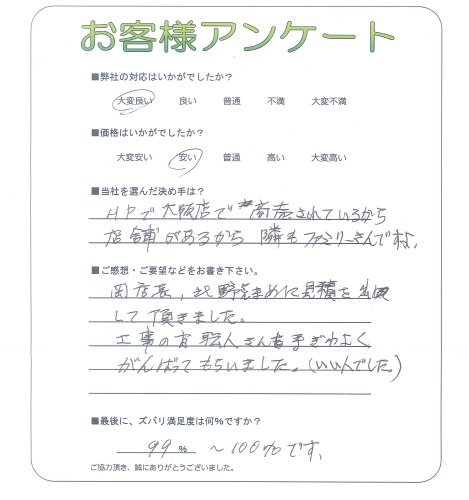 お客様アンケート
■弊社の対応はいかがでしたか？
大変良い 良い 普通 不満 大変不満
■価格はいかがでしたか？
大変安い 安い 普通 高い 大変高い
■当社を選んだ決め手は？
HPで大阪店で商売されているから
店舗があるから 隣もファミリーさんですよ、
■ご感想・ご要望などをお書き下さい。
岡店長、北野さん 見積を
して頂きました。
工事の方 職人さんも手ぎわよく
がんばってもらいました。(いい人でした)
■最後に、ズバリ満足度は何%ですか？
99% ～100%です、
ご協力頂き、誠にありがとうございました。